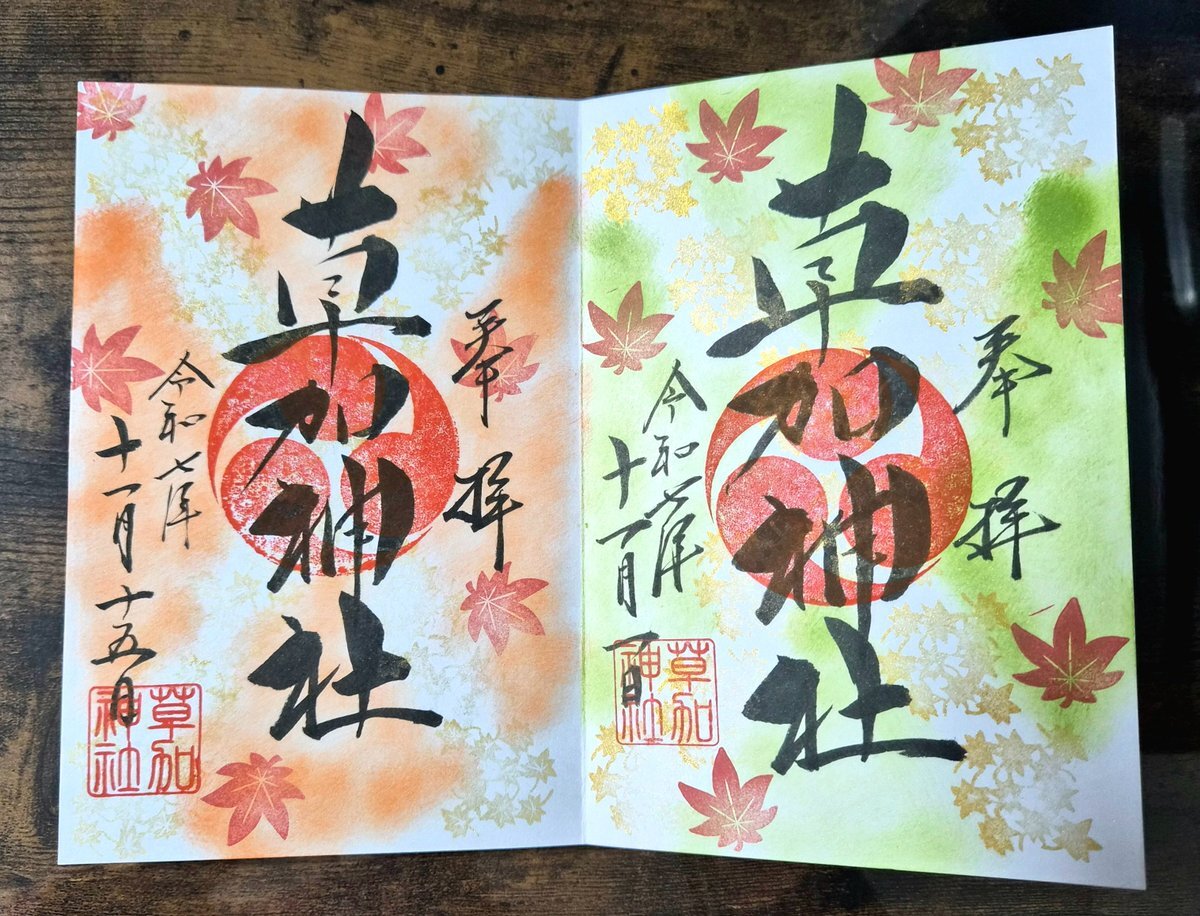 奉拝
草加神社
令和七年
十一月一日
草加
神社
奉拝
草加神社
令和七年
十一月十五日
草加
神社